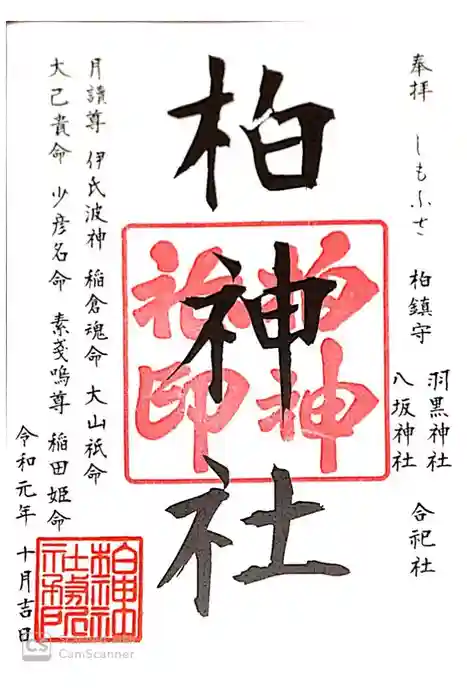 奉拝 しもふさ 柏鎮守 羽黒神社 八坂神社 合祀社
柏神社
柏神社印
月讀尊 伊氐波神 稲倉魂命 大山祇命
大己貴命 少彦名命 素戔嗚尊 稲田姫命
令和元年 十月吉日
CS
CamScanner